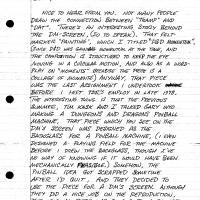 NICE TO HEAR FROM YOU. NOT MANY PEOPLE
DRAW THE CONNECTION BETWEEN "TRAMP" AND
"DAT". THERE'S AN INTERESTING STORY BEHIND
THE DM-SCREEN, (SO TO SPEAK). THAT FELT-
MARKER "PAINTING", WHICH I TITLED
DAD WAS AT THE TIME, AND
THE COMPOSITION IS STRUCTURED TO KEEP THE EYE
MOVING IN A CIRCULAR MOTION, AND ALSO AS A WORD-
PLAY ON "MOMENTS" BECAUSE THE PIECE IS A
COLLAGE OF MOMENTS) ANYWAY, THAT PIECE
WAS THE LAST ASSIGNMENT I UNDERTOOK
BEFORE I LEFT TSR'S EMPLOY IN LATE 1978.
THE INTERESTING THING IS THAT THE PREVIOUS
SUMMER, TIM KASK AND I TALKED GARY INTO
MAKING A DUNGEONS AND DRAGONS PINBALL
MACHINE. THAT PIECE WHICH YOU SEE ON THE
DM'S SCREEN WAS DESIGNED AS THE
BACKGLASS FOR A PINBALL MACHINE. (I EVEN
DESIGNED A PLAYING FIELD FOR THE MACHINE
BEFORE I DREW THE BACKGLASS, THOUGH I'VE
NO WAY OF KNOWING IF IT WOULD HAVE BEEN
MECHANICALLY FEASIBLE.) SOMEHOW, THE
PINBALL IDEA GOT SCRAPPED SOMETIME
AFTER I'D QUIT, AND THEY DECIDED TO
USE THE PIECE FOR A DM'S SCREEN. ALTHOUGH
THEY DID A NICE JOB ON THE REPRODUCTION,